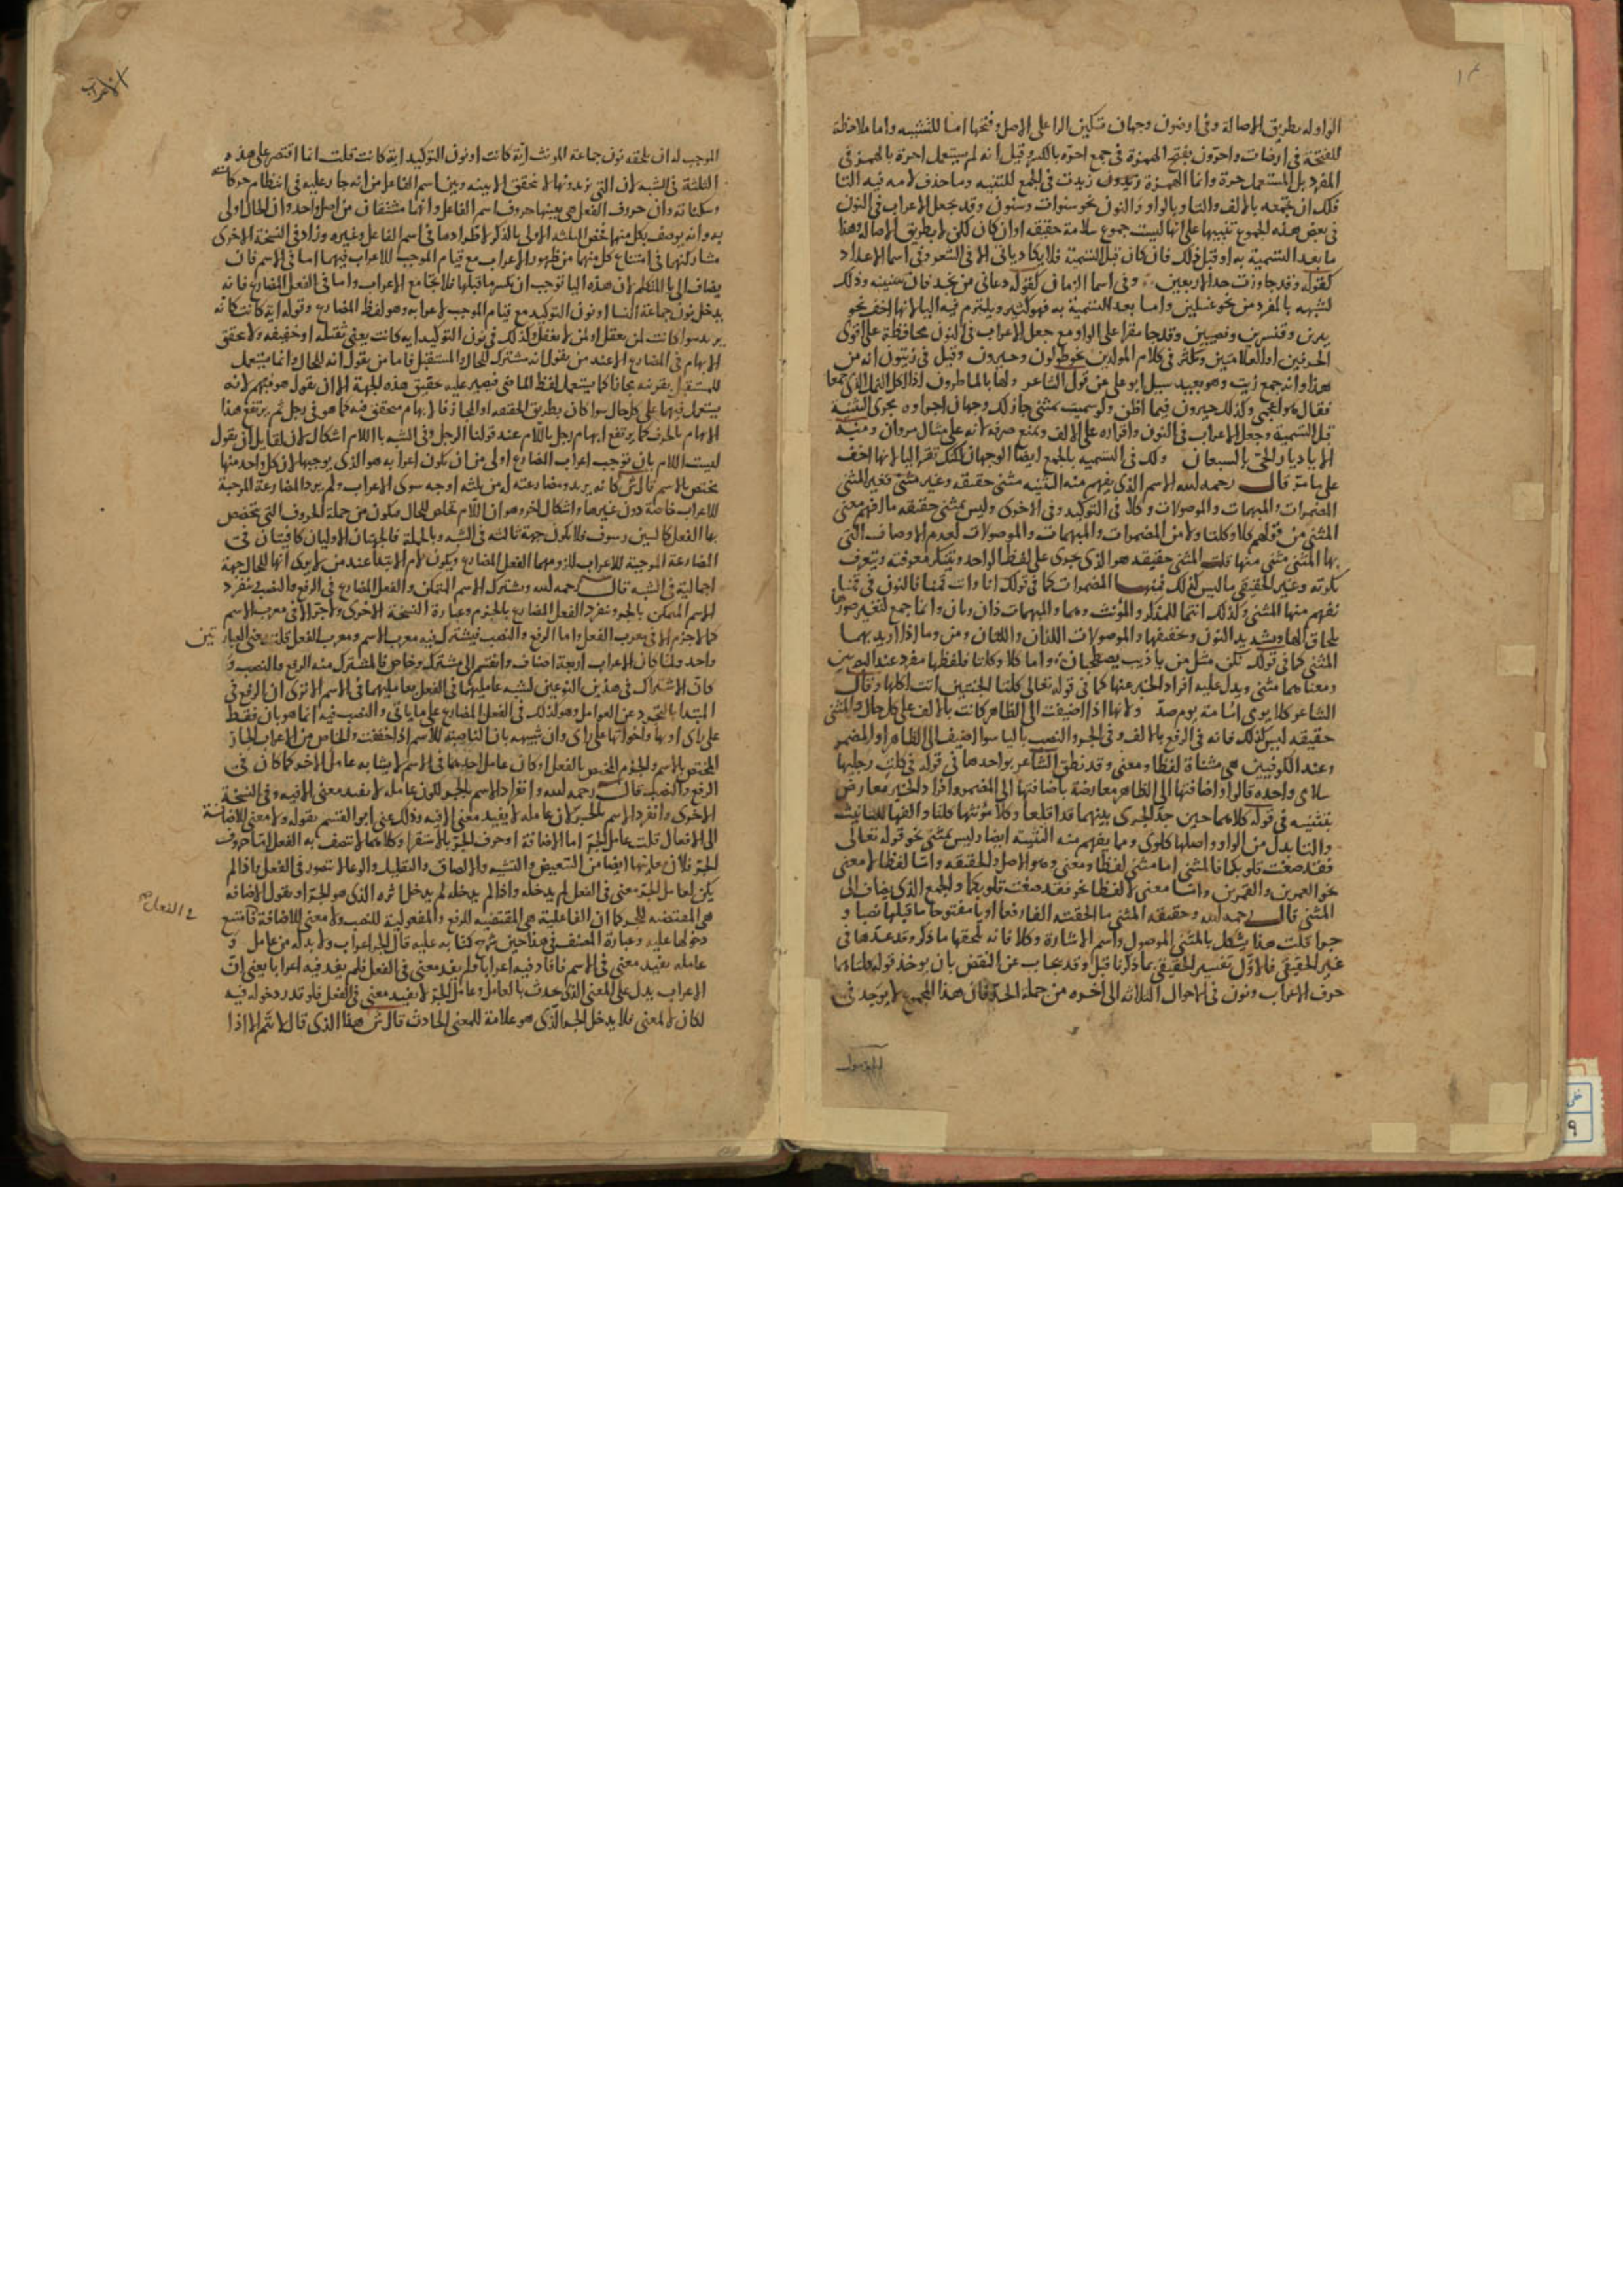 الواو له بطريق الاصالة وفي ارضون وجهان تسكين الرا على الاصل وفتحها اما للتشبيه واما ملاحظة
للفتحة في ارضات واحرون بفتح الهمزة في جمع احرة بالكسر وقيل انه لم يستعمل احرة بالهمز في
المفرد بل المستعمل حرة وانما الهمزة زيدت في الجمع للتنبيه وما حذف لامه فيه التا
فلك ان تجمعه بالالف والتا وبالواو والنون نحو سنوات وسنون وقد يجعل الاعراب في النون
في بعض هذه الجموع تنبيها على انها ليست جموع سلامة حقيقه اوان كان لكن لا بطريق الاصالة وهذا
ما بعد التسمية به او قبل ذلك فان كان قبل التسمية فلا يكاد ياتي الا في الشعر وفي اسما الاعداد
كقوله وقد جاوزت حد الاربعين وفي اسما الزمان كقوله دعاني من نجد فان سنينه وذلك
لشبهه بالمفرد من نحو غسلين واما بعد التسمية به فهو كثير ويلتزم فيه اليا لانها اخف نحو
يبرين وقنسرين ونصيبين وقد جا مقرا على الواو مع جعل الاعراب في النون محافظة على اقوى
الحرفين او العلامتين وكثر في كلام المولدين نحو طولون وحيرون وقيل في زيتون انه من
هذا وانه جمع زيت وهو بعيد سيل ابو علي عن قول الشاعر ولها بالماطرون اذا اكل النمل الذي جمعا
فقال هو اعجمي وكذلك حيرون فيما اظن ولو سميت بمثنى جاز لك وجهان اجراوه مجرى التثنية
قبل التسمية وجعل الاعراب في النون واقراره على الالف ويمنع صرفه لانه على مثال مروان ومنه
الا يا ديار الحي بالسبعان ولك في التسميه بالجمع ايضا الوجهان لكنك تقر اليا لانها اخف
على ما مر قال رحمه الله الاسم الذي يفهم منه التثنيه مثنى حقيقه وغير مثنى فغير المثنى
المضمرات والمبهمات والموصولات وكلا في التوكيد وفي الاخرى وليس بمثنى حقيقه ما افهم معنى
المثنى من قولهم كلا وكلتا ولا من المضمرات والمبهمات والموصولات لعدم الاوصاف التي
بها المثنى مثنى منها قلت المثنى حقيقه هو الذي يجرى على لفظ الواحد ويتنكر معرفته ويتعرف
نكرته وغير الحقيقي ما ليس كذلك فمنها المضمرات كما في قولك انا وانت قمنا فالنون في قمنا
تفهم منها المثنى وكذلك انتما للمذكر والمؤنث وهما والمبهمات ذان وتان وانما جمع لتغير صورها
بلحاق الها وتشديد النون وتخفيفها والموصولات اللذان واللتان ومن وما اذا اريد بهما
المثنى كما في قولك نكن مثل من يا ذيب يصطحبان واما كلا وكلتا فلفظها مفرد عند البصريين
ومعناهما مثنى ويدل عليه افراد الخبر عنها كما في قوله تعالى كلتا الجنتين اتت اكلها وقال
الشاعر كلا يوي امامة يوم صد ولانها اذا اضيفت الى الظاهر كانت بالالف على كل حال والمثنى
حقيقه ليس كذلك فانه في الرفع بالالف وفي الجر والنصب باليا سوا اضيف الى الظاهر او المضمر
وعند الكوفيين هي مثناة لفظا ومعنى وقد نطق الشاعر بواحدها في قوله في كلت رجليها
سلامى واحده قالوا واضافتها الى الظاهر معارضة باضافتها الى المضمر وافراد الخبر معارض
بتثنيته في قوله كلاهما حين جد الجرى بينهما قد اقلعا وكلا مؤنثها كلتا والفها للتانيث
والتا بدل من الواو واصلها كلوى ومما يفهم منه التثنيه ايضا وليس بمثنى نحو قوله تعالى
فقد صغت قلوبكما فالمثنى اما مثنى لفظا ومعنى وهو الاصل والحقيقه واما لفظا لا معنى
نحو العمرين والقمرين واما معنى لا لفظا نحو فقد صغت قلوبكما والجمع الذي يضاف الى
المثنى قال رحمه الله وحقيقه المثنى ما الحقته الفا رفعا او يا مفتوحا ما قبلها نصبا و
جرا قلت هذا يشكل بالمثنى الموصول واسم الاشارة وكلا فانه تلحقها ما ذكر وقد عدها في
غير الحقيقي فالاول تفسير الحقيقي بما ذكرنا قبل وقد يجاب عن النقض بان يوخذ قوله
حرف الاعراب ونون في الاحوال الثلاثه الى اخره من جملة الحد فان هذا المجموع لا يوجد في
الموصول
الاعراب
الموجب له ان تلحقه نون جماعة المونث اية كانت او نون التوكيد اية كانت قلت انما اقتصر على هذه
الثلثة في الشبه لان التي يريدونها لا تحقق الا بينه وبين اسم الفاعل من انه جار عليه في انتظام حركاته
وسكناته وان حروف الفعل هي بعينها حروف اسم الفاعل وانهما مشتقان من اصل واحد وان الحال اولى
به وانه يوصف بكل منهما خص الثلثه الاولى بالذكر لاطرادها في اسم الفاعل وغيره وزاد في النسخة الاخرى
مشاركتها في امتناع كل منهما من ظهور الاعراب مع قيام الموجب للاعراب فيهما اما في الاسم فان
يضاف الى يا المتكلم لان هذه اليا توجب ان تكسر ما قبلها فلا تجامع الاعراب واما في الفعل المضارع فانه
يدخل نون جماعة النسا او نون التوكيد مع قيام الموجب لاعرابه وهو لفظ المضارع وقوله اية كانت كانه
يريد سوا كانت لمن يعقل او لمن لا يعقل وكذلك في نون التوكيد ايه كانت يعني ثقيله او خفيفه ولا تحقق
الابهام في المضارع الا عند من يقول انه مشترك للحال والمستقبل فاما من يقول انه للحال وانما يستعمل
للمستقبل بقرينه مجازا كما يستعمل لفظ الماضي فيصير عليه تحقيق هذه الجهة الا ان يقول هو مبهم لانه
يستعمل فيهما على كل حال سوا كان بطريق الحقيقه او المجاز فالابهام متحقق فيه كما هو في رجل ثم يرتفع هذا
الابهام بالحرف كما يرتفع ابهام رجل باللام عند قولنا الرجل وفي الشبه باللام اشكال لان لقايل ان يقول
ليست اللام بان توجب اعراب المضارع اولى من ان تكون اعرابه هو الذي يوجبها لان كل واحد منها
يختص بالاسم قال ش كانه يريد ومضارعته له من ثلثه اوجه سوى الاعراب ولم يرد المضارعة الموجبة
للاعراب خاصة دون غيرها واشكال اخر وهو ان اللام تخلص للحال فتكون من جملة الحروف التي تخصص
بها الفعل كالسين وسوف فلا تكون جهة ثالثه في الشبه وبالجملة فالجهتان الاوليان كافيتان في
المضارعة الموجبة للاعراب للزومهما الفعل المضارع وتكون لام الابتدا عند من لا يرى انها للحال جهة
اجمالية في الشبه قال رحمه الله ويشترك الاسم المتمكن والفعل المضارع في الرفع والنصب وينفرد
الاسم المتمكن بالجر وينفرد الفعل المضارع بالجزم وعبارة النسخة الاخرى ولا جر الا في معرب الاسم
كما لا جزم الا في معرب الفعل واما الرفع والنصب فيشترك فيه معرب الاسم ومعرب الفعل قلت معنى العبارتين
واحد ولما كان الاعراب اربعة اصناف وانقسم الى مشترك وخاص فالمشترك منه الرفع والنصب و
كان الاشتراك في هذين النوعين لشبه عامليهما في الفعل بعامليهما في الاسم الا ترى ان الرفع في
المبتدا بالتجرد عن العوامل وهو كذلك في الفعل المضارع على ما ياتي والنصب فيه انما هو بان فقط
على راى او بها واخواتها على راى وان شبيهه بان الناصبة للاسم اذا خففت والخاص من الاعراب الجار
المختص بالاسم والجزم المختص بالفعل اذ كان عامل احدهما في الاسم لا يشابه عامل الاخر كما كان في
الرفع والنصب قال رحمه الله وانفراد الاسم بالجر لكون عامله لا يفيد معنى الا فيه وفي النسخة
الاخرى وانفرد الاسم بالجر لان عامله لا يفيد معنى الا فيه وذلك عنى ابو القسم بقوله ولا معنى للاضافة
الى الافعال قلت عامل الجر اما الاضافة او حرف الجر بالاستقرا وكلاهما لا تتصف به الفعل اما حروف
الجر فلان معانيها ايضا من التبعيض والتشبيه والالصاق والتقليل والوعا لا تتصور في الفعل فاذا لم
يكن لعامل الجر معنى في الفعل لم يدخله واذا لم يدخله لم يدخل اثره الذي هو الجر او يقول الاضافه
هي المقتضيه للجر كما ان الفاعلية هي المقتضيه للرفع والمفعولية للنصب ولا معنى للاضافة فامتنع
في الفعل صح
دخولها عليه وعبارة المصنف في هذا حين شرح كتابه عليه قال الجر اعراب ولا بد له من عامل و
عامله يفيد معنى في الاسم فافاد فيه اعرابا ولم يفد معنى في الفعل فلم يفد فيه اعرابا يعني ان
الاعراب يدل على المعنى الذي يحدث بالعامل وعامل الجر لا يفيد معنى في الفعل فلو قدر دخوله فيه
لكان لا لمعنى فلا يدخل الجر الذي هو علامة للمعنى الحادث قال ش هذا الذي قال لا يتم الا اذا